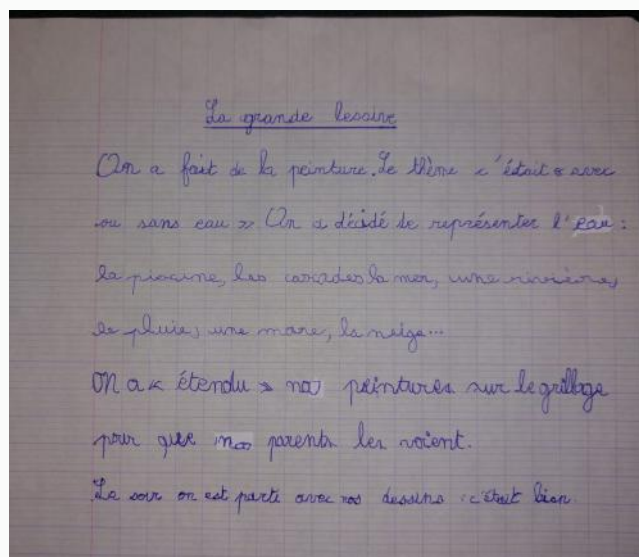 La grande lessive
On a fait de la peinture. Le thème c'était « avec
ou sans eau » On a décidé de représenter l'eau :
la piscine, les cascades la mer, une rivière,
la pluie, une mare, la neige...
On a « étendu » nos peintures sur le grillage
pour que nos parents les voient.
Le soir on est parti avec nos dessins : c'était bien.